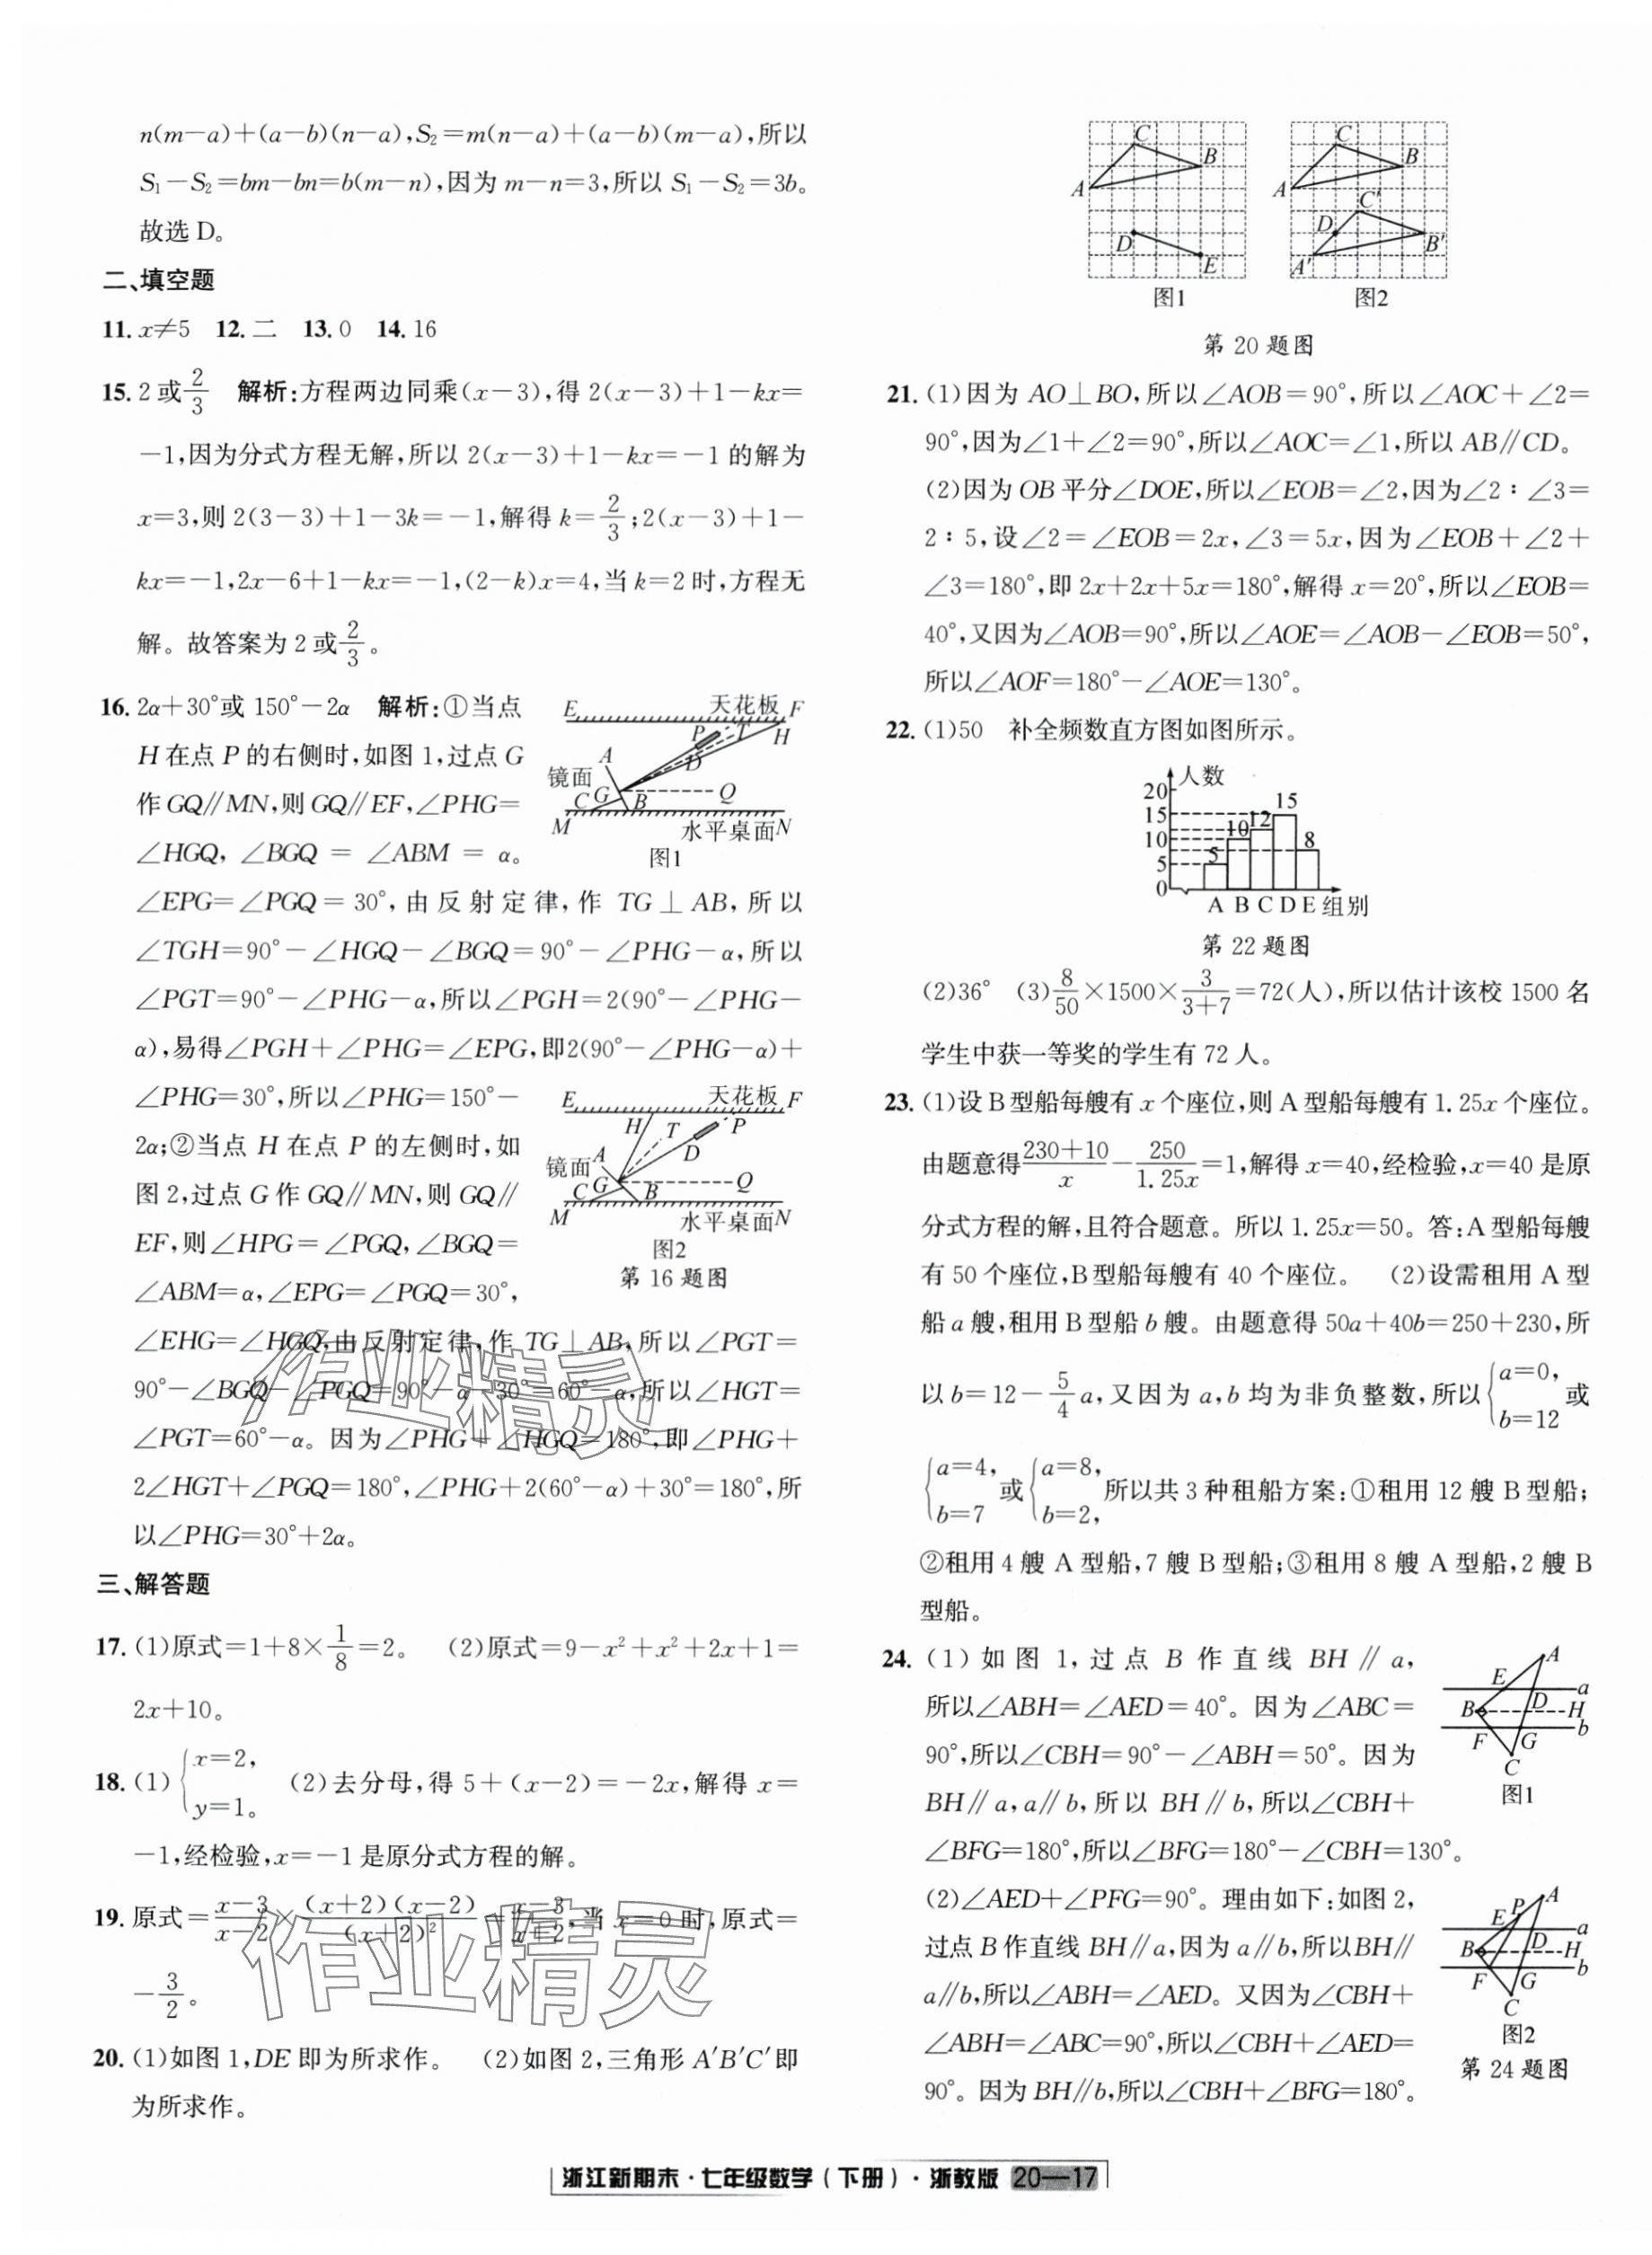 n(m-a)+(a-b)(n-a),S₂=m(n-a)+(a-b)(m-a),所以
S₁-S₂=bm-bn=b(m-n),因为 m-n=3,所以 S₁-S₂=3b。
故选 D。
二、填空题
11. x≠5 12. 二 13. 0 14. 16
15. 2 或 2/3 解析:方程两边同乘(x-3),得 2(x-3)+1-kx=
-1,因为分式方程无解,所以 2(x-3)+1-kx=-1 的解为
x=3,则 2(3-3)+1-3k=-1,解得 k=2/3;2(x-3)+1-
kx=-1,2x-6+1-kx=-1,(2-k)x=4,当 k=2 时,方程无
解。故答案为 2 或 2/3。
16. 2α+30°或 150°-2α 解析:①当点
H 在点 P 的右侧时,如图 1,过点 G
作 GQ∥MN,则 GQ∥EF,∠PHG=
∠HGQ, ∠BGQ = ∠ABM = α。
∠EPG=∠PGQ=30°,由反射定律,作 TG⊥AB,所以
∠TGH=90°-∠HGQ-∠BGQ=90°-∠PHG-α,所以
∠PGT=90°-∠PHG-α,所以∠PGH=2(90°-∠PHG-
α),易得∠PGH+∠PHG=∠EPG,即2(90°-∠PHG-α)+
∠PHG=30°,所以∠PHG=150°-
2α;②当点 H 在点 P 的左侧时,如
图 2,过点 G 作 GQ∥MN,则 GQ∥
EF,则∠HPG=∠PGQ,∠BGQ=
∠ABM=α,∠EPG=∠PGQ=30°,
∠EHG=∠HGQ,由反射定律,作 TG⊥AB,所以∠PGT=
90°-∠BGQ-∠PGQ=90°-α-30°=60°-α,所以∠HGT=
∠PGT=60°-α。因为∠PHG+∠HGQ=180°,即∠PHG+
2∠HGT+∠PGQ=180°,∠PHG+2(60°-α)+30°=180°,所
以∠PHG=30°+2α。
E 天花板 F
P T H
A D
镜面
C G B Q
M 水平桌面 N
图1
E 天花板 F
H T P
D
镜面 A
C G B Q
M 水平桌面 N
图2
第 16 题图
三、解答题
17. (1)原式=1+8×1/8=2。 (2)原式=9-x²+x²+2x+1=
2x+10。
18. (1){x=2, y=1。 (2)去分母,得 5+(x-2)=-2x,解得 x=
-1,经检验,x=-1 是原分式方程的解。
19. 原式=(x-3)/(x-2)×(x+2)(x-2)/(x+2)²=(x-3)/(x+2),当 x=0 时,原式=
-3/2。
20. (1)如图 1,DE 即为所求作。 (2)如图 2,三角形 A′B′C′即
为所求作。
C B A D E
图1
C B A C′ D B′ A′
图2
第 20 题图
21. (1)因为 AO⊥BO,所以∠AOB=90°,所以∠AOC+∠2=
90°,因为∠1+∠2=90°,所以∠AOC=∠1,所以 AB∥CD。
(2)因为 OB 平分∠DOE,所以∠EOB=∠2,因为∠2∶∠3=
2∶5,设∠2=∠EOB=2x,∠3=5x,因为∠EOB+∠2+
∠3=180°,即 2x+2x+5x=180°,解得 x=20°,所以∠EOB=
40°,又因为∠AOB=90°,所以∠AOE=∠AOB-∠EOB=50°,
所以∠AOF=180°-∠AOE=130°。
22. (1)50 补全频数直方图如图所示。
人数
20
15
10
5
0
5 10 12 15 8
A B C D E 组别
第 22 题图
(2)36° (3)8/50×1500×3/(3+7)=72(人),所以估计该校 1500 名
学生中获一等奖的学生有 72 人。
23. (1)设 B 型船每艘有 x 个座位,则 A 型船每艘有 1.25x 个座位。
由题意得(230+10)/x-250/1.25x=1,解得 x=40,经检验,x=40 是原
分式方程的解,且符合题意。所以 1.25x=50。答:A 型船每艘
有 50 个座位,B 型船每艘有 40 个座位。 (2)设需租用 A 型
船 a 艘,租用 B 型船 b 艘。由题意得 50a+40b=250+230,所
以 b=12-5/4a,又因为 a,b 均为非负整数,所以{a=0, b=12 或
{a=4, b=7 或{a=8, b=2, 所以共 3 种租船方案:①租用 12 艘 B 型船;
②租用 4 艘 A 型船,7 艘 B 型船;③租用 8 艘 A 型船,2 艘 B
型船。
24. (1)如图 1,过点 B 作直线 BH∥a,
所以∠ABH=∠AED=40°。因为∠ABC=
90°,所以∠CBH=90°-∠ABH=50°。因为
BH∥a,a∥b,所以 BH∥b,所以∠CBH+
∠BFG=180°,所以∠BFG=180°-∠CBH=130°。
(2)∠AED+∠PFG=90°。理由如下:如图 2,
过点 B 作直线 BH∥a,因为 a∥b,所以BH∥
a∥b,所以∠ABH=∠AED。又因为∠CBH+
∠ABH=∠ABC=90°,所以∠CBH+∠AED=
90°。因为 BH∥b,所以∠CBH+∠BFG=180°。
A
E a
B D H
F G b
C
图1
A
E P a
B D H
F G b
C
图2
第 24 题图
作业精灵
作业精灵
浙江新期末·七年级数学(下册)·浙教版 20—17